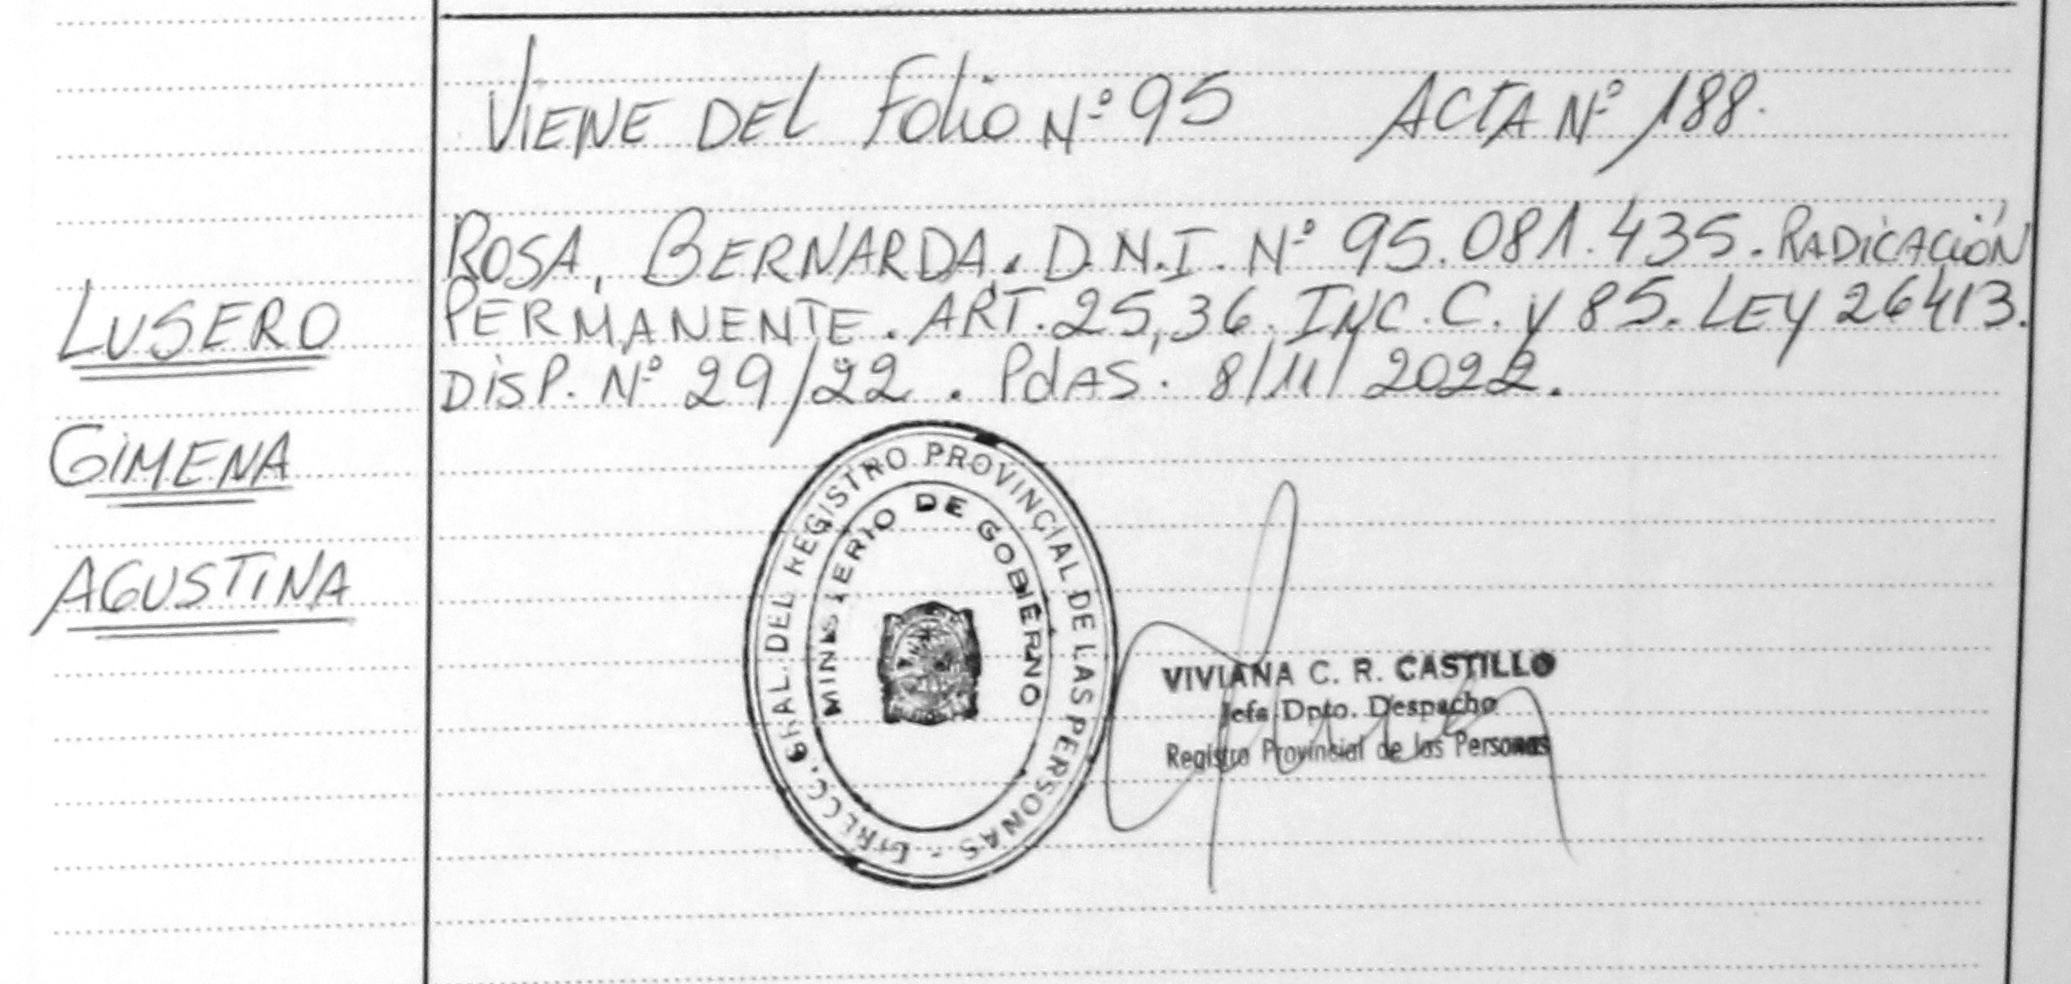 VIENE DEL Folio Nº 95 ACTA Nº 188.
ROSA, BERNARDA. D.N.I. Nº 95.081.435. RADICACIÓN
PERMANENTE. ART. 25, 36. INC. C. Y 85. LEY 26413.
DISP. Nº 29/22. PdAS. 8/11/2022.
LUSERO
GIMENA
AGUSTINA
DIRECC. GRAL. DEL REGISTRO PROVINCIAL DE LAS PERSONAS -
MINISTERIO DE GOBIERNO
VIVIANA C. R. CASTILLO
Jefa Dpto. Despacho
Registro Provincial de las Personas